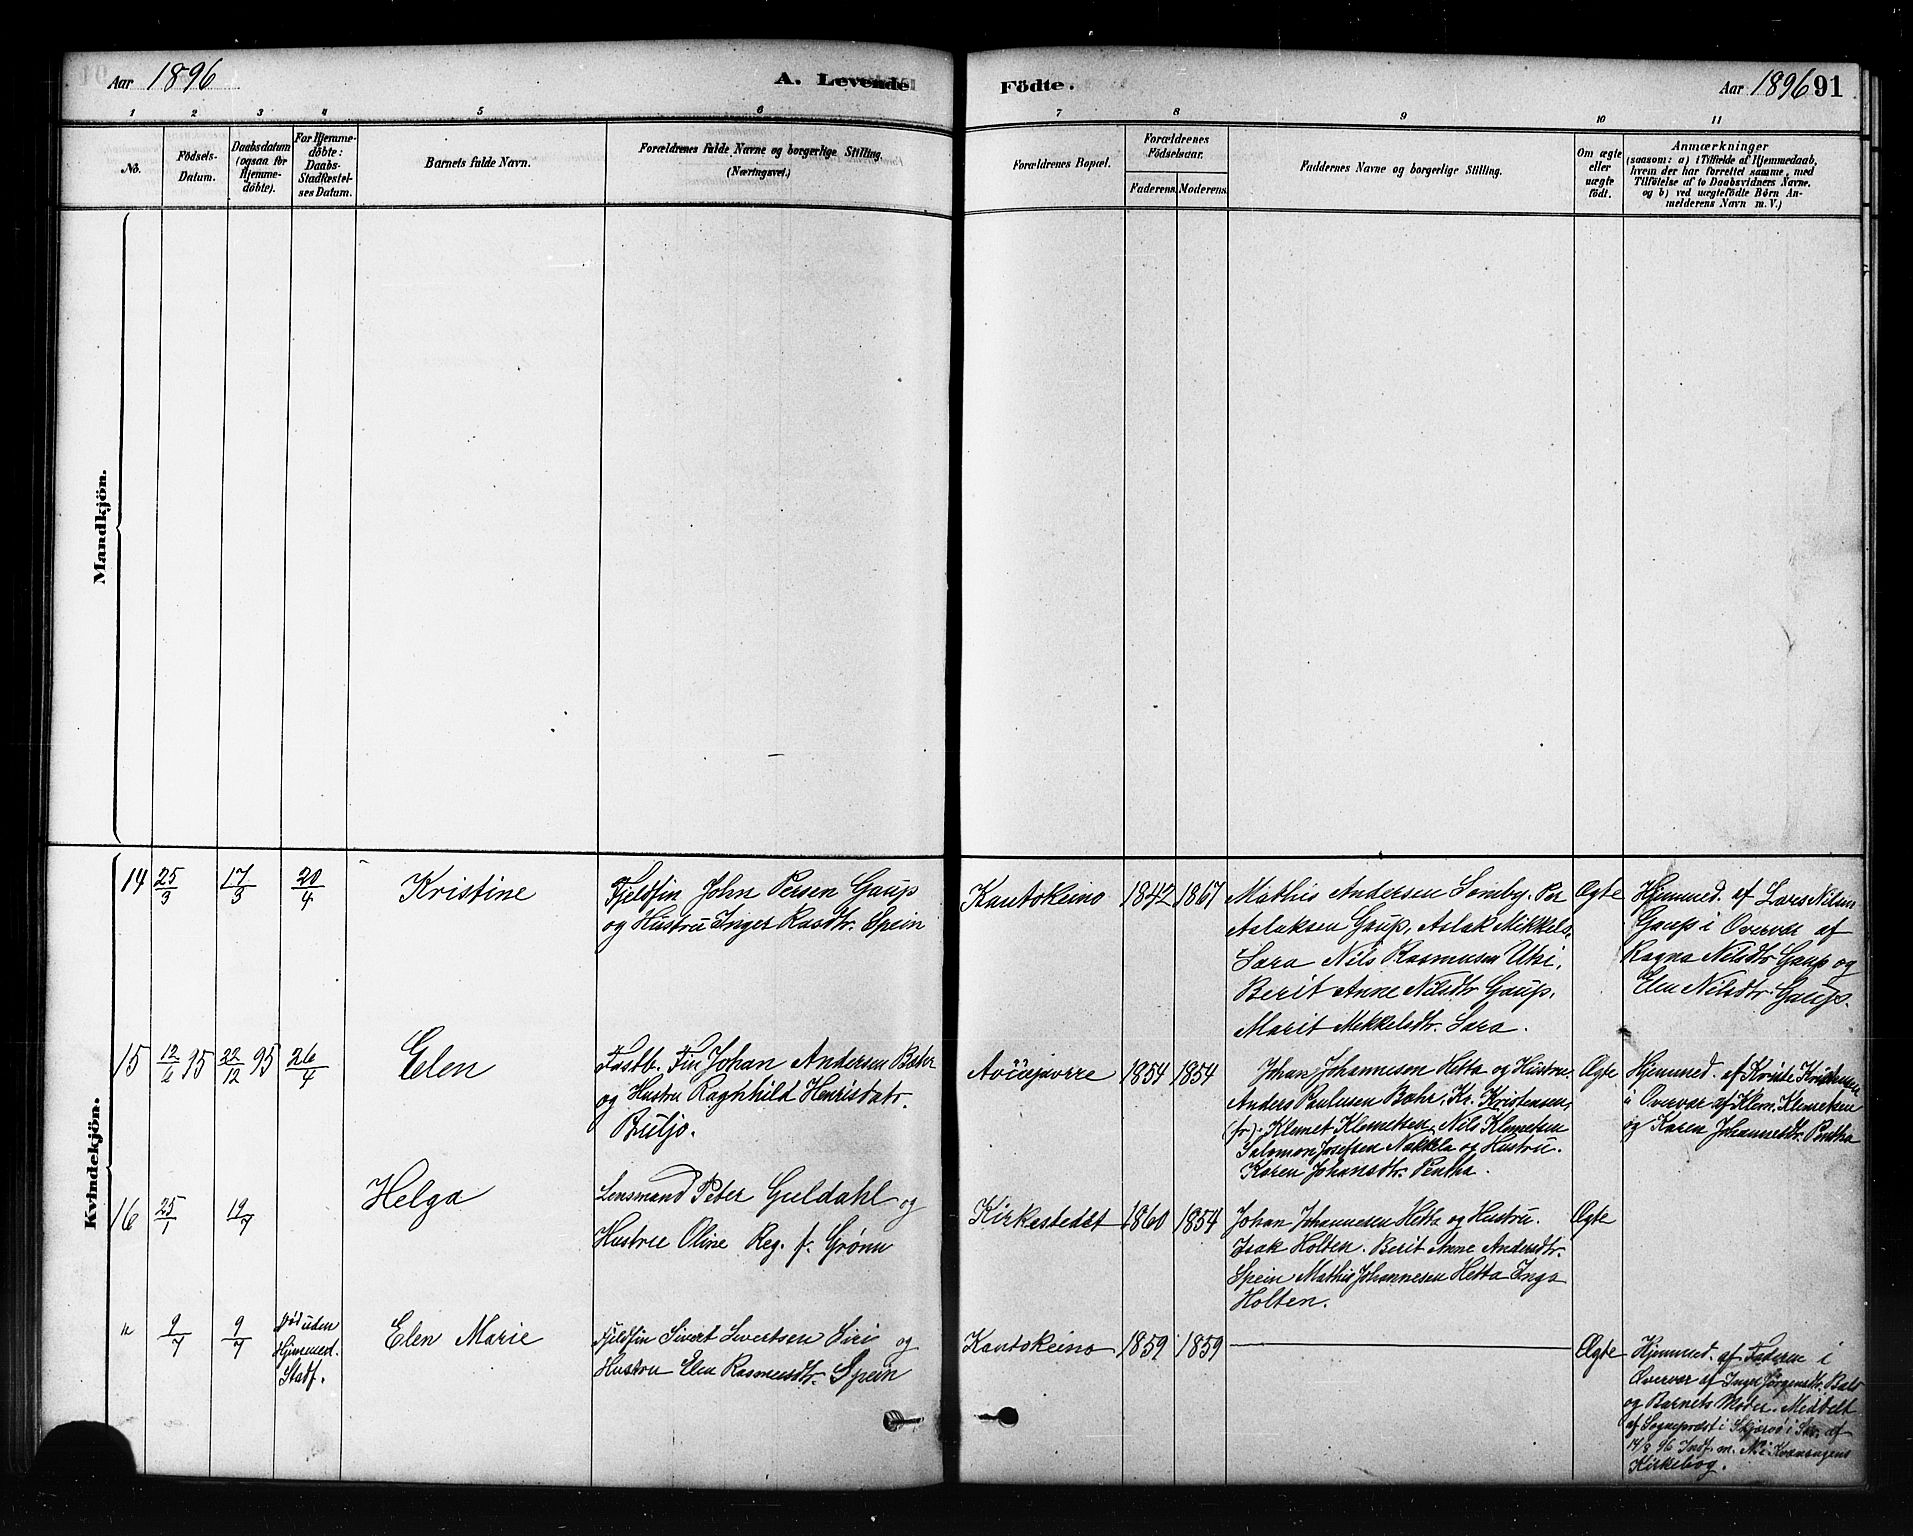 Aar 1896
A. Levende
Födte.
Aar 1896 91
1 2 3 4 5 6 7 8 9 10 11
No.
Födsels-
Datum.
Daabsdatum
(ogsaa for
Hjemme-
døbte).
For Hjemme-
døbte:
Daabs-
Stadfæstel-
ses Datum.
Barnets fulde Navn.
Forældrenes fulde Navne og borgerlige Stilling.
(Næringsvei.)
Forældrenes Bopæl.
Forældrenes
Födselsaar.
Faderens. Moderens.
Faddernes Navne og borgerlige Stilling.
Om ægte
eller
uægte
födt.
Anmærkninger
(saasom: a) i Tilfælde af Hjemmedaab,
hvem der har forrettet samme, med
Tilföielse af to Daabsvidners Navne,
og b) ved uægtefödte Börn An-
melderens Navn m. V.)
Mandkjön.
Kvindekjön.
14 25/3 17/3 20/4 Kristine
Fjeldfin John Persen Gaup
og Hustru Inger Rasdtr. Spein
Kautokeino 1842 1867
Mathis Andersen Somby. Per
Aslaksen Gaup, Aslak Mikkels.
Sara Nils Rasmusen Utsi.
Berit Anne Nilsdtr Gaup.
Marit Mikkelsdtr. Sara.
Ægte
Hjemmed. af Lars Nilsen
Gaup i Overvær af
Ragna Nilsdtr Gaup og
Elen Nilsdtr. Gaup.
15 95 22/12 95 26/4 Elen
Fastb. Fin Johan Andersen Bæhr
og Hustru Raghhild Henrisdatr.
Buljo.
Avčejavrre 1854 1854
Johan Johannesen Hetta og Hustru.
Anders Paulusen Bæhr, Kr. Kristensen,
Klemet Klemetsen, Nils Klemetsen
Salomon Josefsen Nakkela og Hustru.
Karen Johansdtr. Pentha.
Ægte
Hjemmed. af Kriste Kristensen
i Overvær af Klem. Klemetsen
og Karen Johannesdtr. Pentha
16 25/1 19/7 Helga
Lensmand Peter Guldahl og
Hustru Oline Reg. f. Grønn
Kirkestedet 1860 1854
Johan Johannesen Hetta og Hustru.
Isak Holten. Berit Anne Andersdtr.
Spein Mathis Johannesen Hetta Inga
Holten.
Ægte
" 9/7 9/7 død uden
Hjemmed.
Stadf.
Elen Marie
Fjeldfin Sivert Sivertsen Siri og
Hustru Elen Rasmusdtr. Spein
Kautokeino 1859 1859
Ægte
Hjemmed. af Faderen i
Overvær af Inger Jørgensdtr. Bals
og Barnets Moder. Meddelt
af Sogneprest i Skjærvø i Skr. af
14/8 96 Indf. m. N. i Kvænangens
Kirkebog.